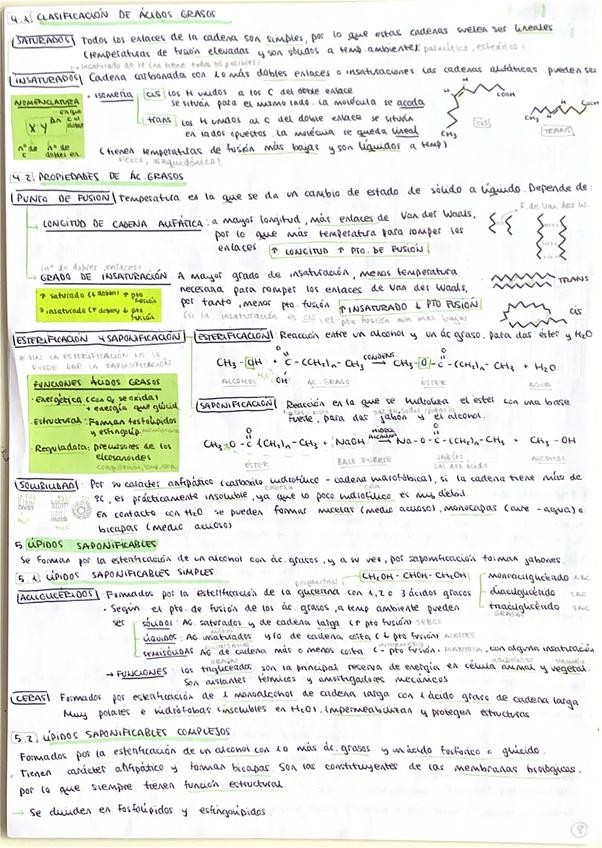 4.1 CLASIFICACIÓN DE ÁCIDOS GRASOS
SATURADOS Todos los enlaces de la cadena son simples, por lo que estas cadenas suelen ser lineales
(temperaturas de fusión elevadas y son sólidos a temp ambiente) palmítico, esteárico
insaturado de H (no tiene todos los posibles)
INSATURADOS Cadena carbonada con 1 o más dobles enlaces o insaturaciones las cadenas alifáticas pueden ser
NOMENCLATURA
X:Y Δn
nº de C
nº de dobles en.
· isomería cis los H unidos a los C del doble enlace
se sitúan para el mismo lado. La molécula se acoda
trans los H unidos al C del doble enlace se sitúan
en lados opuestos. La molécula se queda lineal
(tienen temperaturas de fusión más bajas y son líquidos a temp)
oleico, araquidónico
COOH
CH3
CIS
H
TRANS
4.2 PROPIEDADES DE ÁC. GRASOS
PUNTO DE FUSION Temperatura es la que se da un cambio de estado de sólido a líquido. Depende de:
F. de Van der W.
LONGITUD DE CADENA ALIFÁTICA: a mayor longitud, más enlaces de Van der Waals,
por lo que más temperatura para romper los
enlaces ↑ LONGITUD ↑ PTO. DE FUSIÓN
(nº de dobles enlaces)
GRADO DE INSATURACIÓN A mayor grado de insaturación, menos temperatura
necesaria para romper los enlaces de Van der Waals,
por tanto, menor pto. fusión ↑ INSATURADO ↓ PTO FUSIÓN
(si la insaturación es cis, el pto fusión aun más bajo)
↑ saturado (↓ dobles) ↑ pto fusión
↑ insaturado (↑ dobles) ↓ pto fusión
TRANS
CIS
ESTERIFICACIÓN Y SAPONIFICACIÓN
* SIN LA ESTERIFICACIÓN NO SE
PUEDE DAR LA SAPONIFICACIÓN
ESTERIFICACIÓN: Reacción entre un alcohol y un ác graso, para das éster y H2O
CH3 - OH + C - (CH2)n - CH3 → CH3 - O - C - (CH2)n - CH3 + H2O
ALCOHOL ÁC. GRASO ÉSTER AGUA
FUNCIONES ÁCIDOS GRASOS
· Energética (con O2 se oxida)
+ energía que glúcid
· Estructural: Forman fosfolípidos
y esfingolíp
· Reguladora: precursores de los
eicosanoides
SAPONIFICACIÓN: Reacción en la que se hidroliza el éster con una base
fuerte, para das jabón y el alcohol.
CH3 - O - C - (CH2)n - CH3 + NaOH → Na - O - C - (CH2)n - CH3 + CH3 - OH
ÉSTER BASE FUERTE JABÓN ALCOHOL
sal del ácido
SOLUBILIDAD Por su carácter anfipático (carboxilo hidrófilo - cadena hidrófoba), si la cadena tiene más de
8C, es prácticamente insoluble, ya que lo poco hidrofílico es muy débil.
En contacto con H2O se pueden formar micelas (medio acuoso), monocapas (aire - agua) o
bicapas (medio acuoso)
5 LÍPIDOS SAPONIFICABLES
Se forman por la esterificación de un alcohol con ác. grasos, y a su vez, por saponificación forman jabones.
5.1 LÍPIDOS SAPONIFICABLES SIMPLES
propanotriol
CH2OH - CHOH - CH2OH
monoacilglicérido
diacilglicérido
triacilglicérido
ACILGLICÉRIDOS Formados por la esterificación de la glicerina con 1, 2 o 3 ácidos grasos
· Según el pto. de fusión de los ác. grasos, a temp ambiente pueden
ser sólidos: AG. saturados y de cadena larga (↑ pto fusión) SEBOS
líquidos: AG insaturados y/o de cadena corta (↓ pto fusión) ACEITES
semisólidas AG de cadena más o menos corta (- pto fusión, MANTECA, con alguna insaturación
→ FUNCIONES: los triglicéridos son la principal reserva de energía en célula animal y vegetal.
Son aislantes térmicos y amortiguadores mecánicos
CERAS Formados por esterificación de 1 monoalcohol de cadena larga con 1 ácido graso de cadena larga
Muy polares e hidrófobas (insolubles en H2O). Impermeabilizan y protegen estructuras
5.2 LÍPIDOS SAPONIFICABLES COMPLEJOS
Formados por la esterificación de un alcohol con 1 o más ác. grasos y un ácido fosfórico o glúcido.
Tienen carácter anfipático y forman bicapas. Son las constituyentes de las membranas biológicas,
por lo que siempre tienen función estructural.
→ Se dividen en fosfolípidos y esfingolípidos.
8